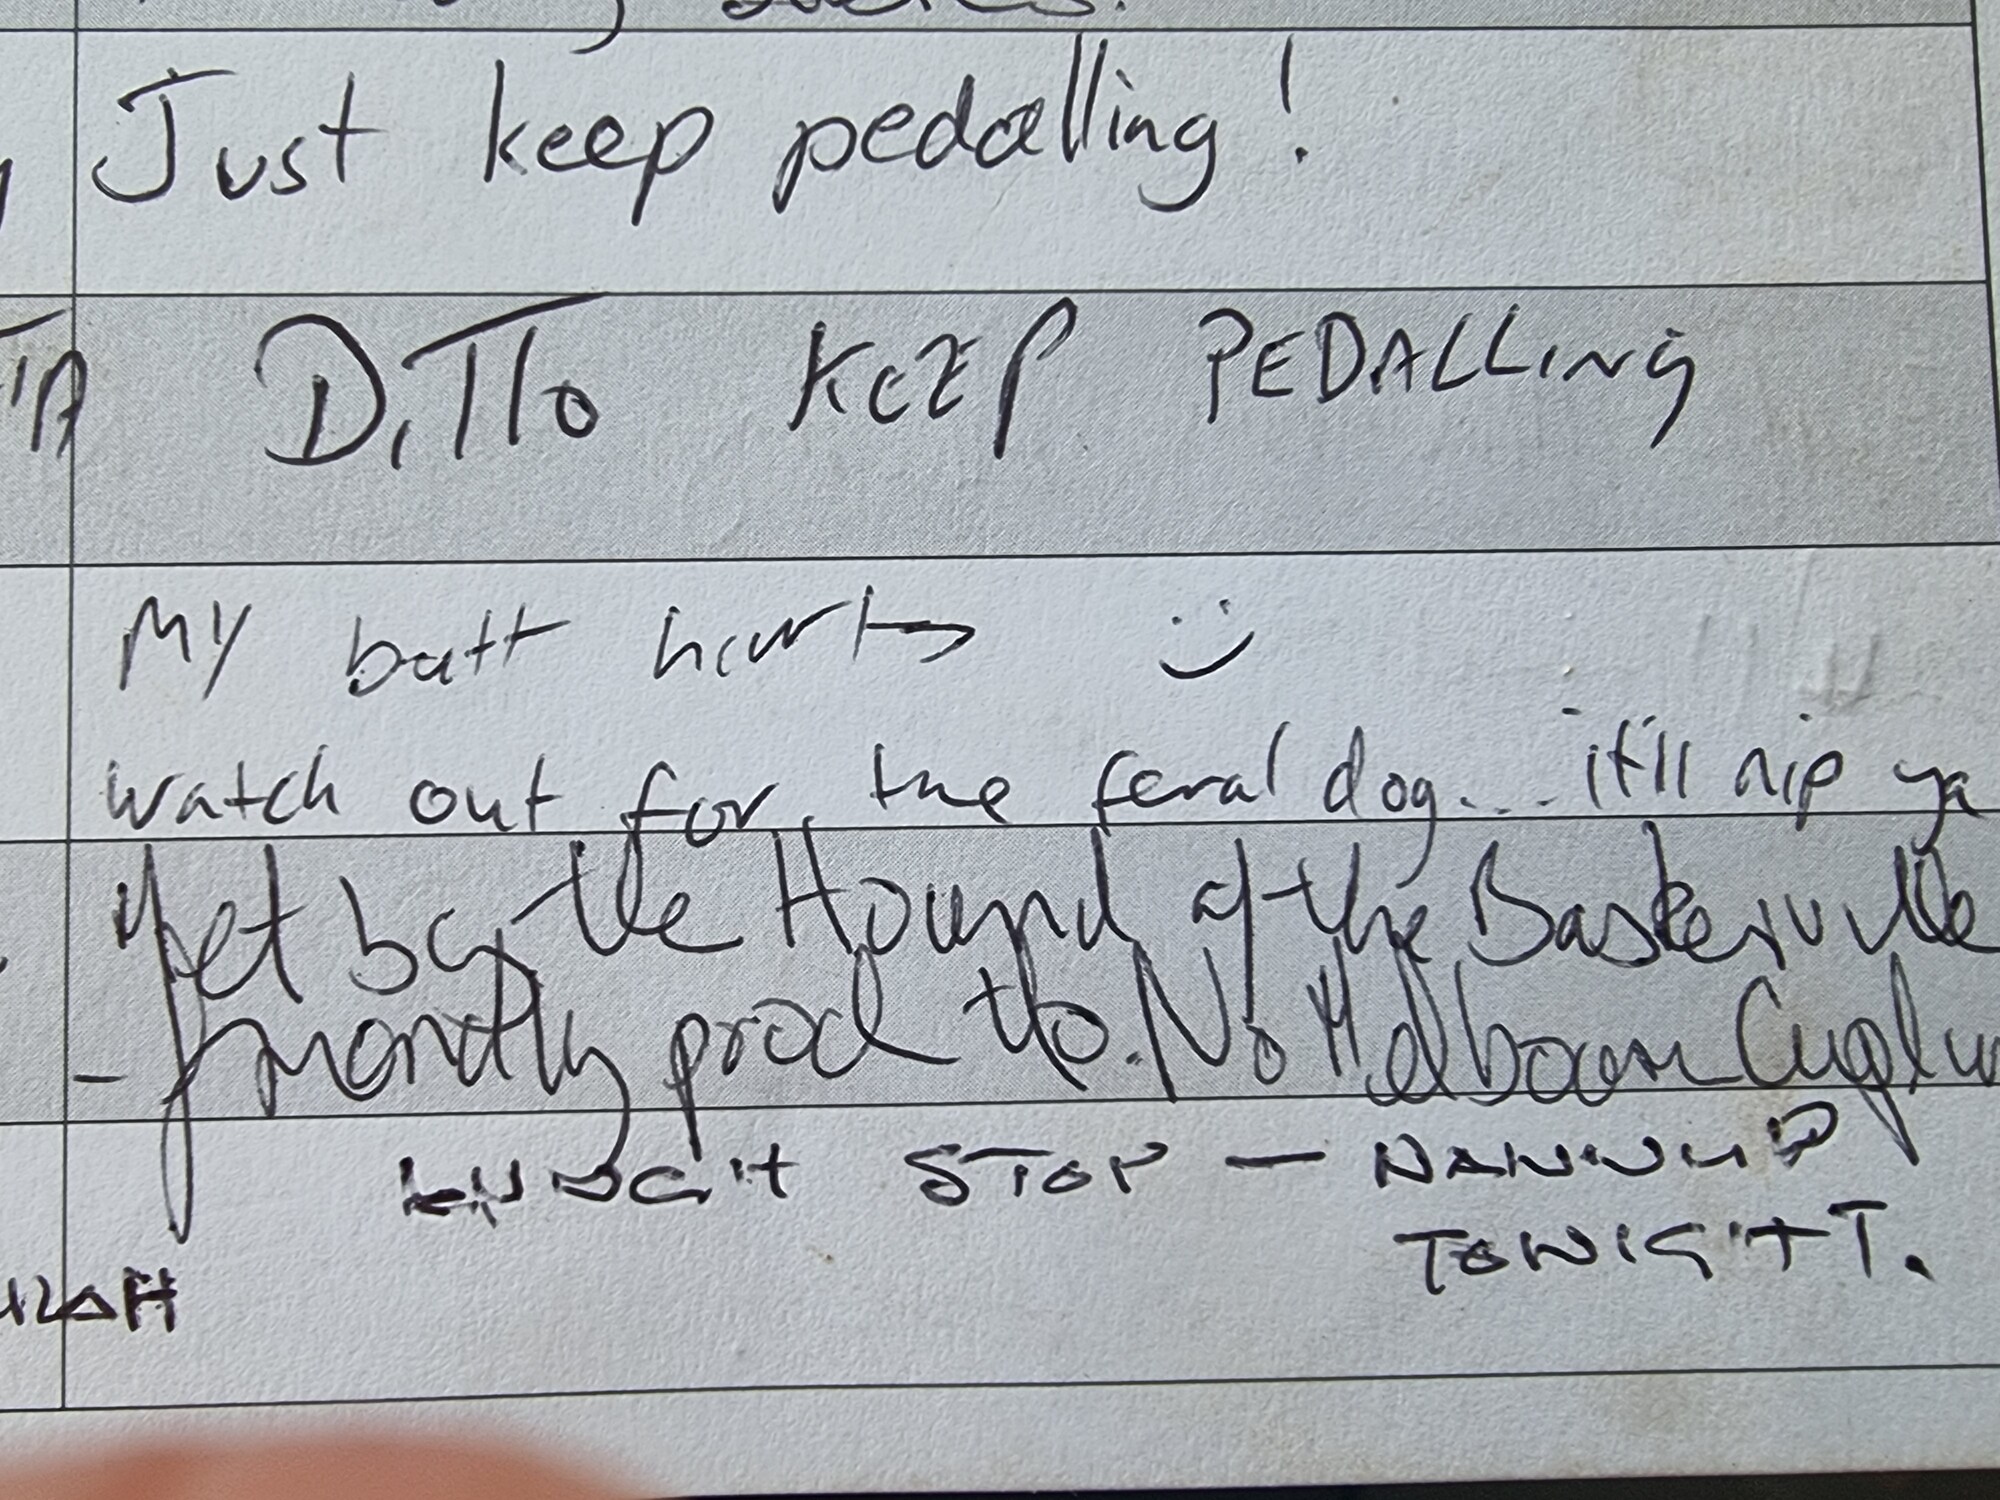 Just keep pedalling!
DITTO KEEP PEDALLING
My butt hurts :)
watch out for the feral dog... it'll nip ya
Met by the Hound of the Baskerville
- friendly prod tho. No Melbourn
LUNCH STOP — NANNUP
TONIGHT.